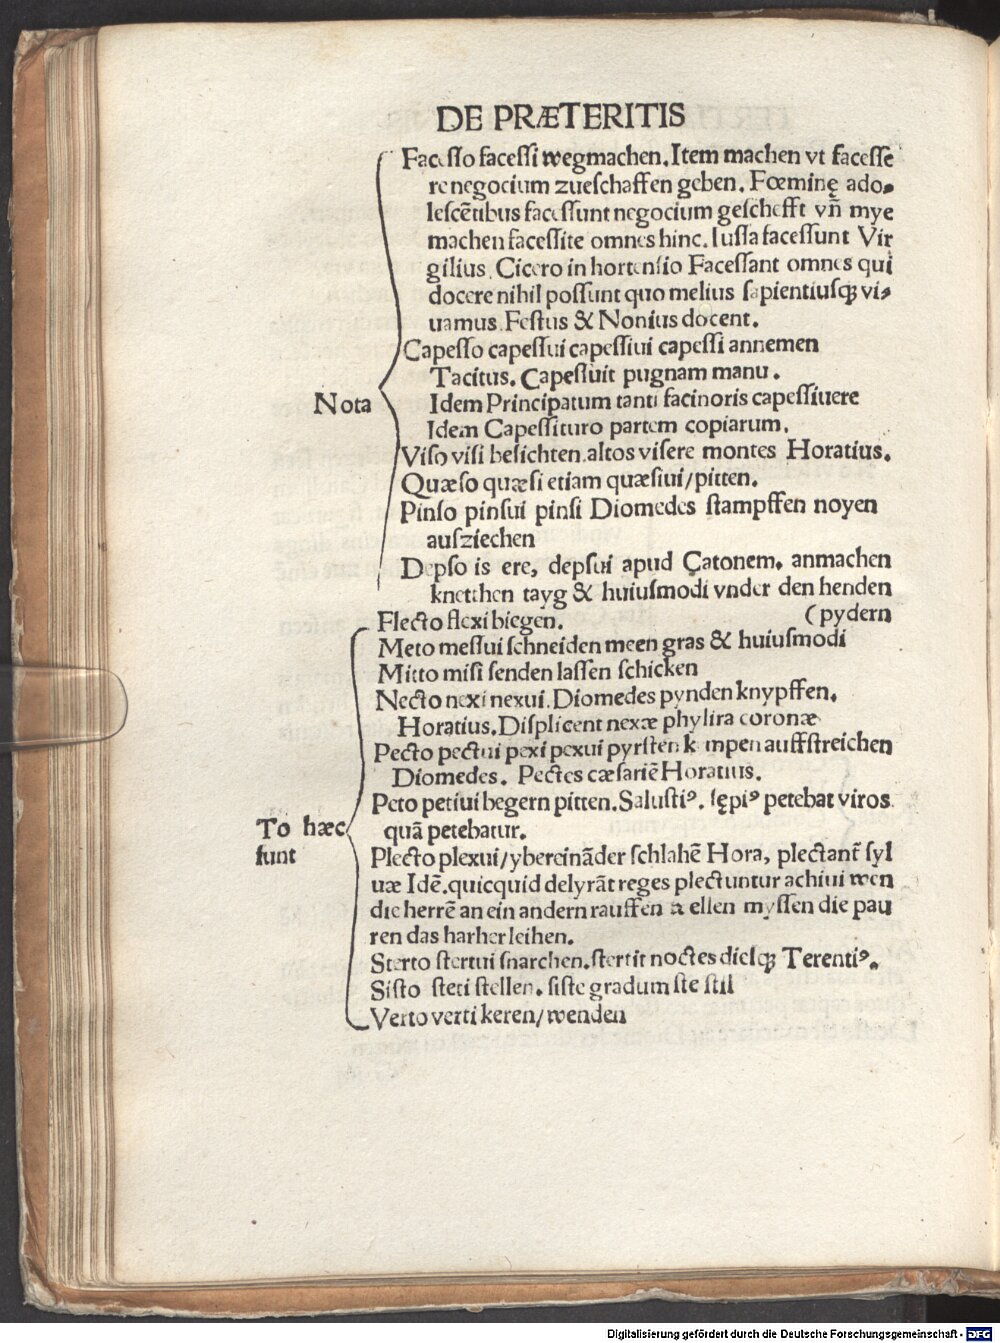 DE PRÆTERITIS
Facesso facessi wegmachen. Item machen vt facesse
re negocium zueschaffen geben. Fœminę ado⸗
lescētibus facessunt negocium geschefft vñ mye
machen facessite omnes hinc. Iussa facessunt Vir
gilius. Cicero in hortensio Facessant omnes qui
docere nihil possunt quo melius sapientiusqꝫ vi⸗
uamus. Festus & Nonius docent.
Capesso capessui capessiui capessi annemen
Tacitus. Capessiuit pugnam manu.
Nota
Idem Principatum tanti facinoris capessiuere
Idem Capessituro partem copiarum.
Viso visi besichten. altos visere montes Horatius.
Quæso quæsi etiam quæsiui/pitten.
Pinso pinsui pinsi Diomedes stampffen noyen
ausziechen
Depso is ere, depsui apud Catonem. anmachen
knetthen tayg & huiusmodi vnder den henden
Flecto flexi biegen. (pydern
Meto messui schneiden meen gras & huiusmodi
Mitto misi senden lassen schicken
Necto nexi nexui. Diomedes pynden knypffen.
Horatius. Displicent nexæ phylira coronæ
Pecto pectui pexi pexui pyrsten kempen auffstreichen
Diomedes. Pectes cæsariē Horatius.
Peto petiui begern pitten. Salustiꝰ. sępiꝰ petebat viros
To hæc quā petebatur.
sunt
Plecto plexui/ybereināder schlahē Hora, plectant̄ syl
uæ Idē. quicquid delyrāt reges plectuntur achiui wen
die herrē an ein andern rauffen ellen myssen die pau
ren das harher leihen.
Sterto stertui snarchen. stertit noctes diesqꝫ Terentiꝰ.
Sisto steti stellen. siste gradum ste stil
Verto verti keren/wenden
Digitalisierung gefördert durch die Deutsche Forschungsgemeinschaft - DFG